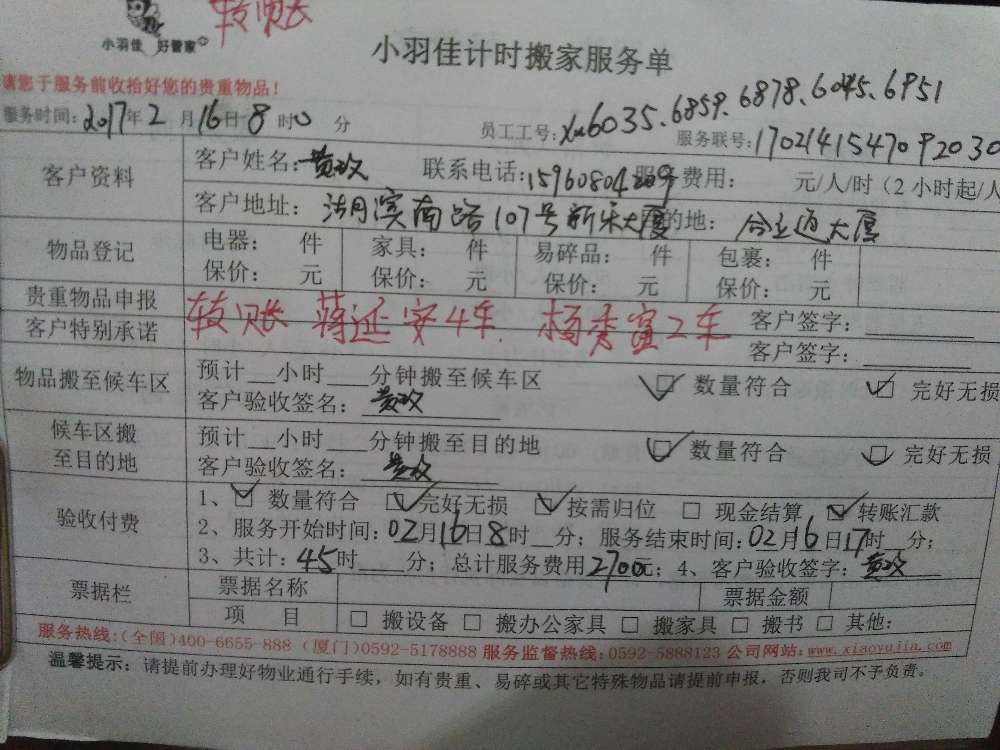 转账
小羽佳 好管家
小羽佳计时搬家服务单
请您于服务前收拾好您的贵重物品！
服务时间：2017年2月16日8时0分
员工工号：xm6035、6859、6878、6045、6951
服务联号：170214154709 2030
客户资料
客户姓名：黄玫 联系电话：15960804209 服务费用： 元/人/时（2小时起/人
客户地址：湖滨南路107号新乐大厦 目的地：合立通大厦
物品登记
电器： 件 家具： 件 易碎品： 件 包裹： 件
保价： 元 保价： 元 保价： 元 保价： 元
贵重物品申报 客户签字：
转账 蒋延安4车、杨秀富2车
客户特别承诺 客户签字：
物品搬至候车区
预计__小时___分钟搬至候车区 数量符合 完好无损
客户验收签名：黄玫
候车区搬
至目的地
预计__小时___分钟搬至目的地 数量符合 完好无损
客户验收签名：黄玫
验收付费
1、数量符合 完好无损 按需归位 现金结算 转账汇款
2、服务开始时间：02月16日8时__分；服务结束时间：02月16日17时__分；
3、共计：45时____分；总计服务费用2700元；4、客户验收签字：黄玫
票据栏
票据名称 票据金额
项 目 搬设备 搬办公家具 搬家具 搬书 其他：
服务热线：（全国）400-6655-888（厦门）0592-5178888 服务监督热线：0592-5888123 公司网站：www.xiaoyujia.com
温馨提示：请提前办理好物业通行手续，如有贵重、易碎或其它特殊物品请提前申报，否则我司不予负责。